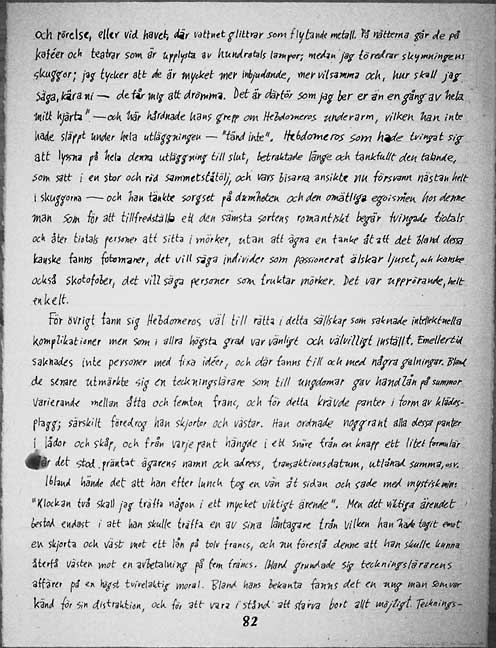 och rörelse, eller vid havet, där vattnet glittrar som flytande metall. På nätterna går de på
kaféer och teatrar som är upplysta av hundratals lampor; medan jag föredrar skymningens
skuggor; jag tycker att de är mycket mer inbjudande, mer vilsamma och, hur skall jag
säga, kära ni — de får mig att drömma. Det är därför som jag ber er än en gång av hela
mitt hjärta" — och här hårdnade hans grepp om Hebdomeros underarm, vilken han inte
hade släppt under hela utläggningen — "tänd inte". Hebdomeros som hade tvingat sig
att lyssna på hela denna utläggning till slut, betraktade länge och tankfullt den talande,
som satt i en stor och röd sammetsfåtölj, och vars bisarra ansikte nu försvann nästan helt
i skuggorna — och han tänkte sorgset på dumheten och den omåttliga egoismen hos denne
man som för att tillfredställa ett den sämsta sortens romantiskt begär tvingade tiotals
och åter tiotals personer att sitta i mörker, utan att ägna en tanke åt att det bland dessa
kanske fanns fotomaner, det vill säga individer som passionerat älskar ljuset, och kanske
också skotofober, det vill säga personer som fruktar mörker. Det var upprörande, helt
enkelt.
För övrigt fann sig Hebdomeros väl till rätta i detta sällskap som saknade intellektuella
komplikationer men som i allra högsta grad var vänligt och välvilligt inställt. Emellertid
saknades inte personer med fixa idéer, och där fanns till och med några galningar. Bland
de senare utmärkte sig en teckningslärare som till ungdomar gav handlån på summor
varierande mellan åtta och femton franc, och för detta krävde panter i form av klädes-
plagg; särskilt föredrog han skjortor och västar. Han ordnade noggrant alla dessa panter
i lådor och skåp, och från varje pant hängde i ett snöre från en knapp ett litet formulär
där det stod präntat ägarens namn och adress, transaktionsdatum, utlånad summa, osv.
Ibland hände det att han efter lunch tog en vän åt sidan och sade med mystisk min:
"Klockan två skall jag träffa någon i ett mycket viktigt ärende". Men det viktiga ärendet
bestod endast i att han skulle träffa en av sina låntagare från vilken han hade tagit emot
en skjorta och väst mot ett lån på tolv francs, och nu föreslå denne att han skulle kunna
återfå västen mot en avbetalning på fem francs. Ibland grundade sig teckningslärarens
affärer på en högst tvivelaktig moral. Bland hans bekanta fanns det en ung man som var
känd för sin distraktion, och för att vara i stånd att slarva bort allt möjligt. Tecknings-
82